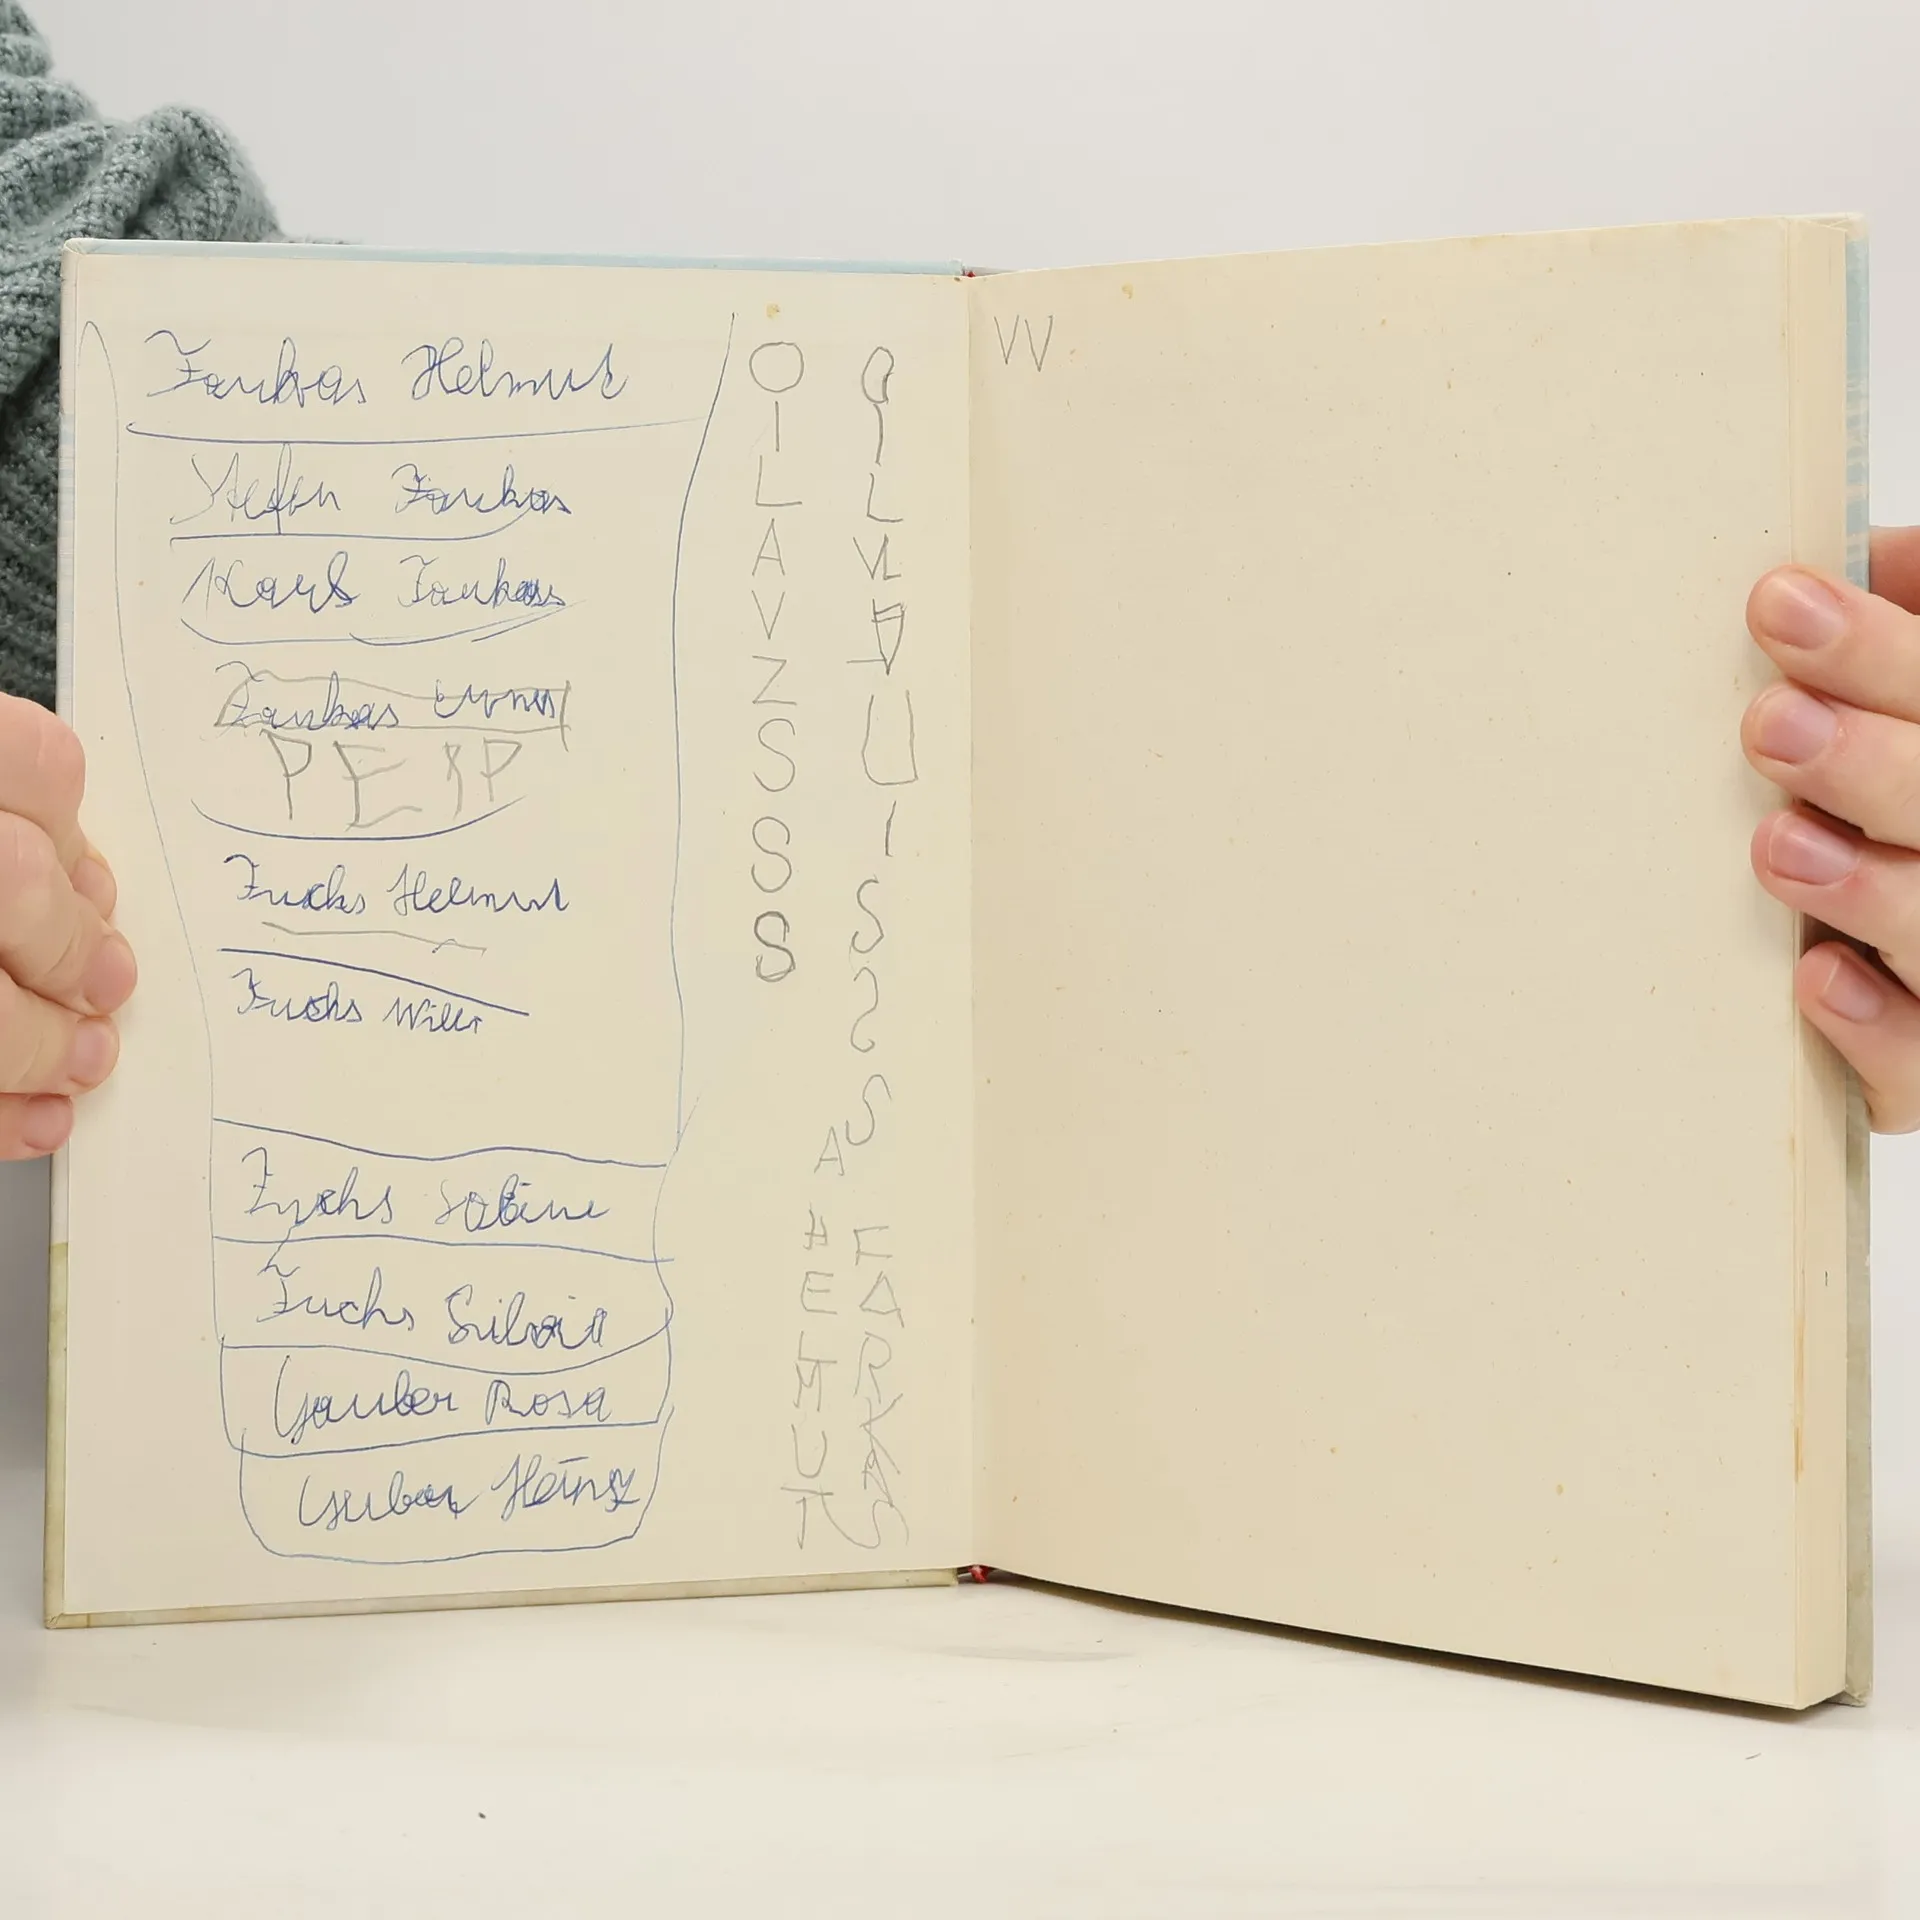 Farkas Helmut
Stefan Farkas
Karl Farkas
Farkas
Fuchs Helmut
Fuchs Willi
Fuchs Sabine
Fuchs
Gauber Rosa
Heinz
O
I
L
A
V
Z
S
S
S
O
I
L
U
I
S
S
S
A
H
E
L
M
U
T
F
A
R
K
A
S
VV